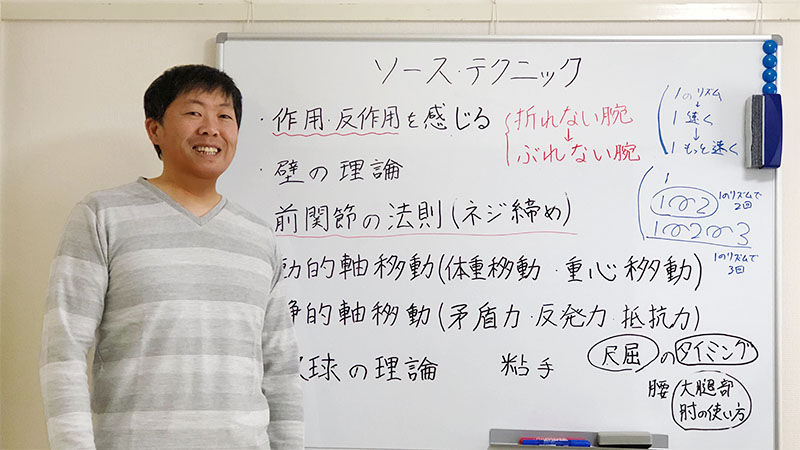 ソース・テクニック
・作用・反作用を感じる
折れない腕
↓
ぶれない腕
1のリズム
↓
1 速く
↓
1 もっと速く
・壁の理論
1
1 2
1のリズムで
2回
1 2 3
1のリズムで
3回
前関節の法則(ネジ締め)
的軸移動(体重移動・重心移動)
的軸移動(矛盾力・反発力・抵抗力)
球の理論
粘手
尺屈のタイミング
腰
大腿部
肘の使い方